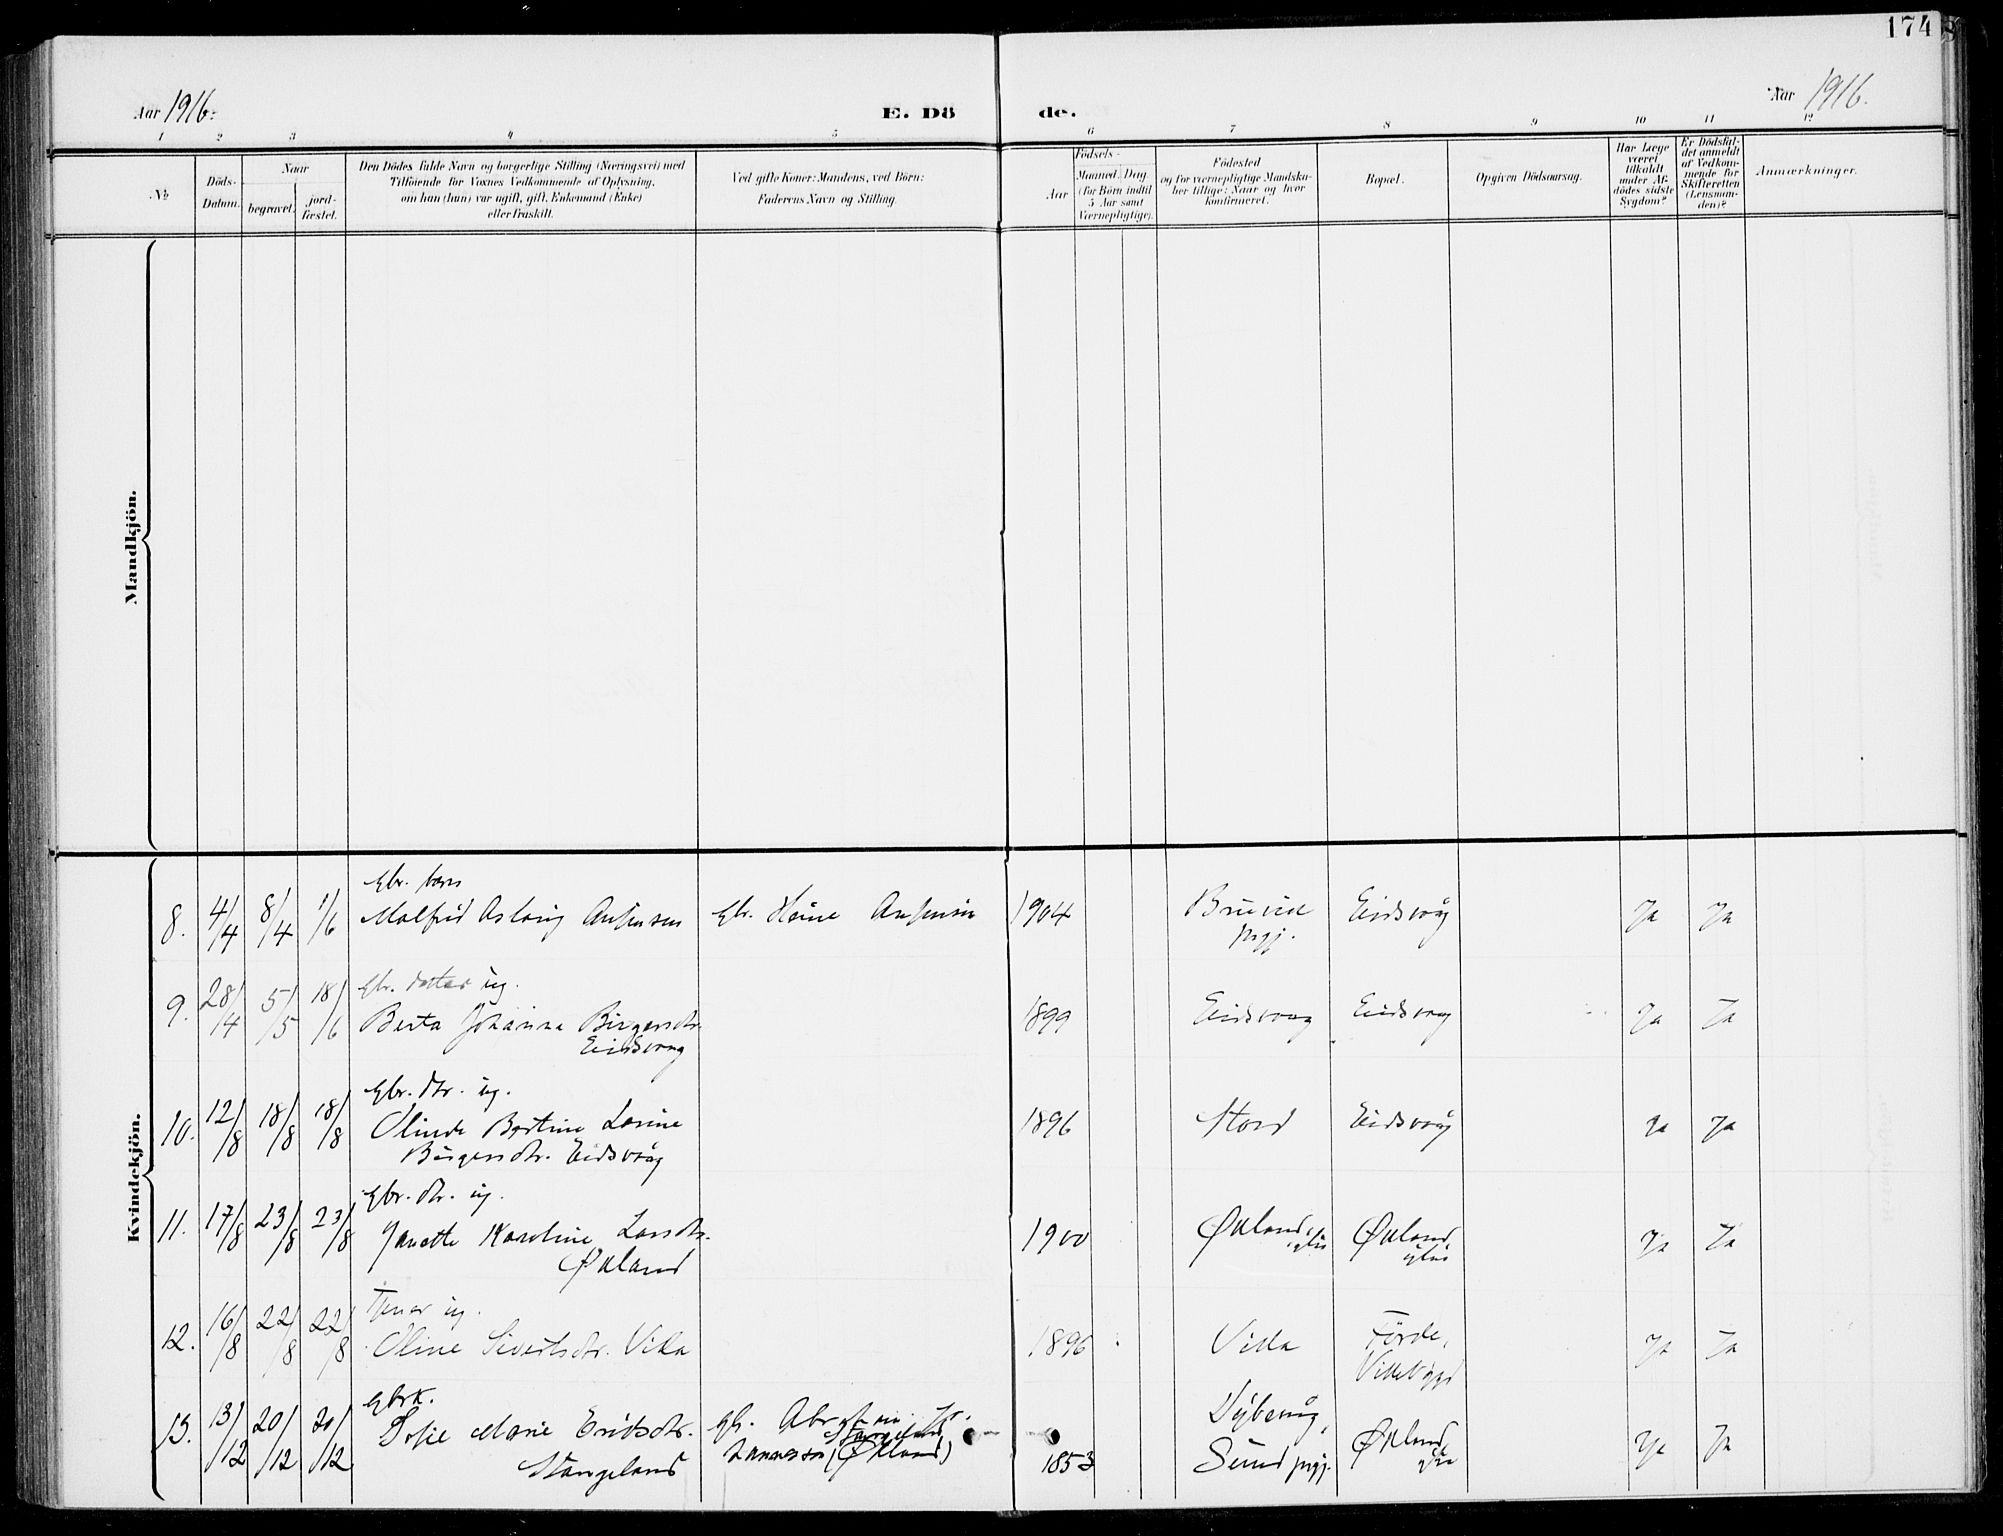 174
Aar 1916.
E. Dö de.
Aar 1916.
1 2 3 4 5 6 7 8 9 10 11 12
No.
Döds-
Datum.
Naar
begravet.
jord-
fæstet.
Den Dödes fulde Navn og borgerlige Stilling (Næringsvei) med
Tilföiende for Voxnes Vedkommende af Oplysning,
om han (hun) var ugift, gift, Enkemand (Enke)
eller fraskilt.
Ved gifte Koner: Mandens, ved Börn:
Faderens Navn og Stilling.
Födsels-
Aar
Maaned. Dag
(for Börn indtil
5 Aar samt
Værnepligtige).
Födested
og for værnepligtige Mandska-
ber tillige: Naar og hvor
konfirmeret.
Bopæl.
Opgiven Dödsaarsag.
Har Læge
været
tilkaldt
under Af-
dödes sidste
Sygdom?
Er Dödsfal-
det anmeldt
af Vedkom-
mende for
Skifteretten
(Lensman-
den)?
Anmærkninger.
Mandkjön.
Kvindekjön.
Gbr. barn
8. 4/4 8/4 1/6 Malfrid Aslaug Ansjensen Gbr. Heine Ansjensen 1904 Bruvik Eidsvåg Ja Ja
prgj.
Gbr. datter ug.
9. 28/4 5/5 18/6 Berta Johanna Birgersdtr. 1899 Eidsvaag Eidsvaag Ja Ja
Eidsvaag
Gbr. dtr. ug.
10. 12/8 18/8 18/8 Olinde Bertine Lovine 1896 Stord Eidsvåg Ja Ja
Birgersdtr. Eidsvåg
Gbr. dtr. ug.
11. 17/8 23/8 23/8 Janette Karoline Larsdtr. 1900 Økland, Økland Ja Ja
Økland
Tjener ug.
12. 16/8 22/8 22/8 Oline Sivertsdtr. Vika 1896 Vika Förde, Ja Ja
Vikebygd
Gbrk.
13. 13/12 20/12 20/12 Sofie Marie Eriksdtr. Gbr. Abraham Dybevåg,
Stangeland
Stangeland (Økland) 1853 Sund prgj. Økland Ja Ja